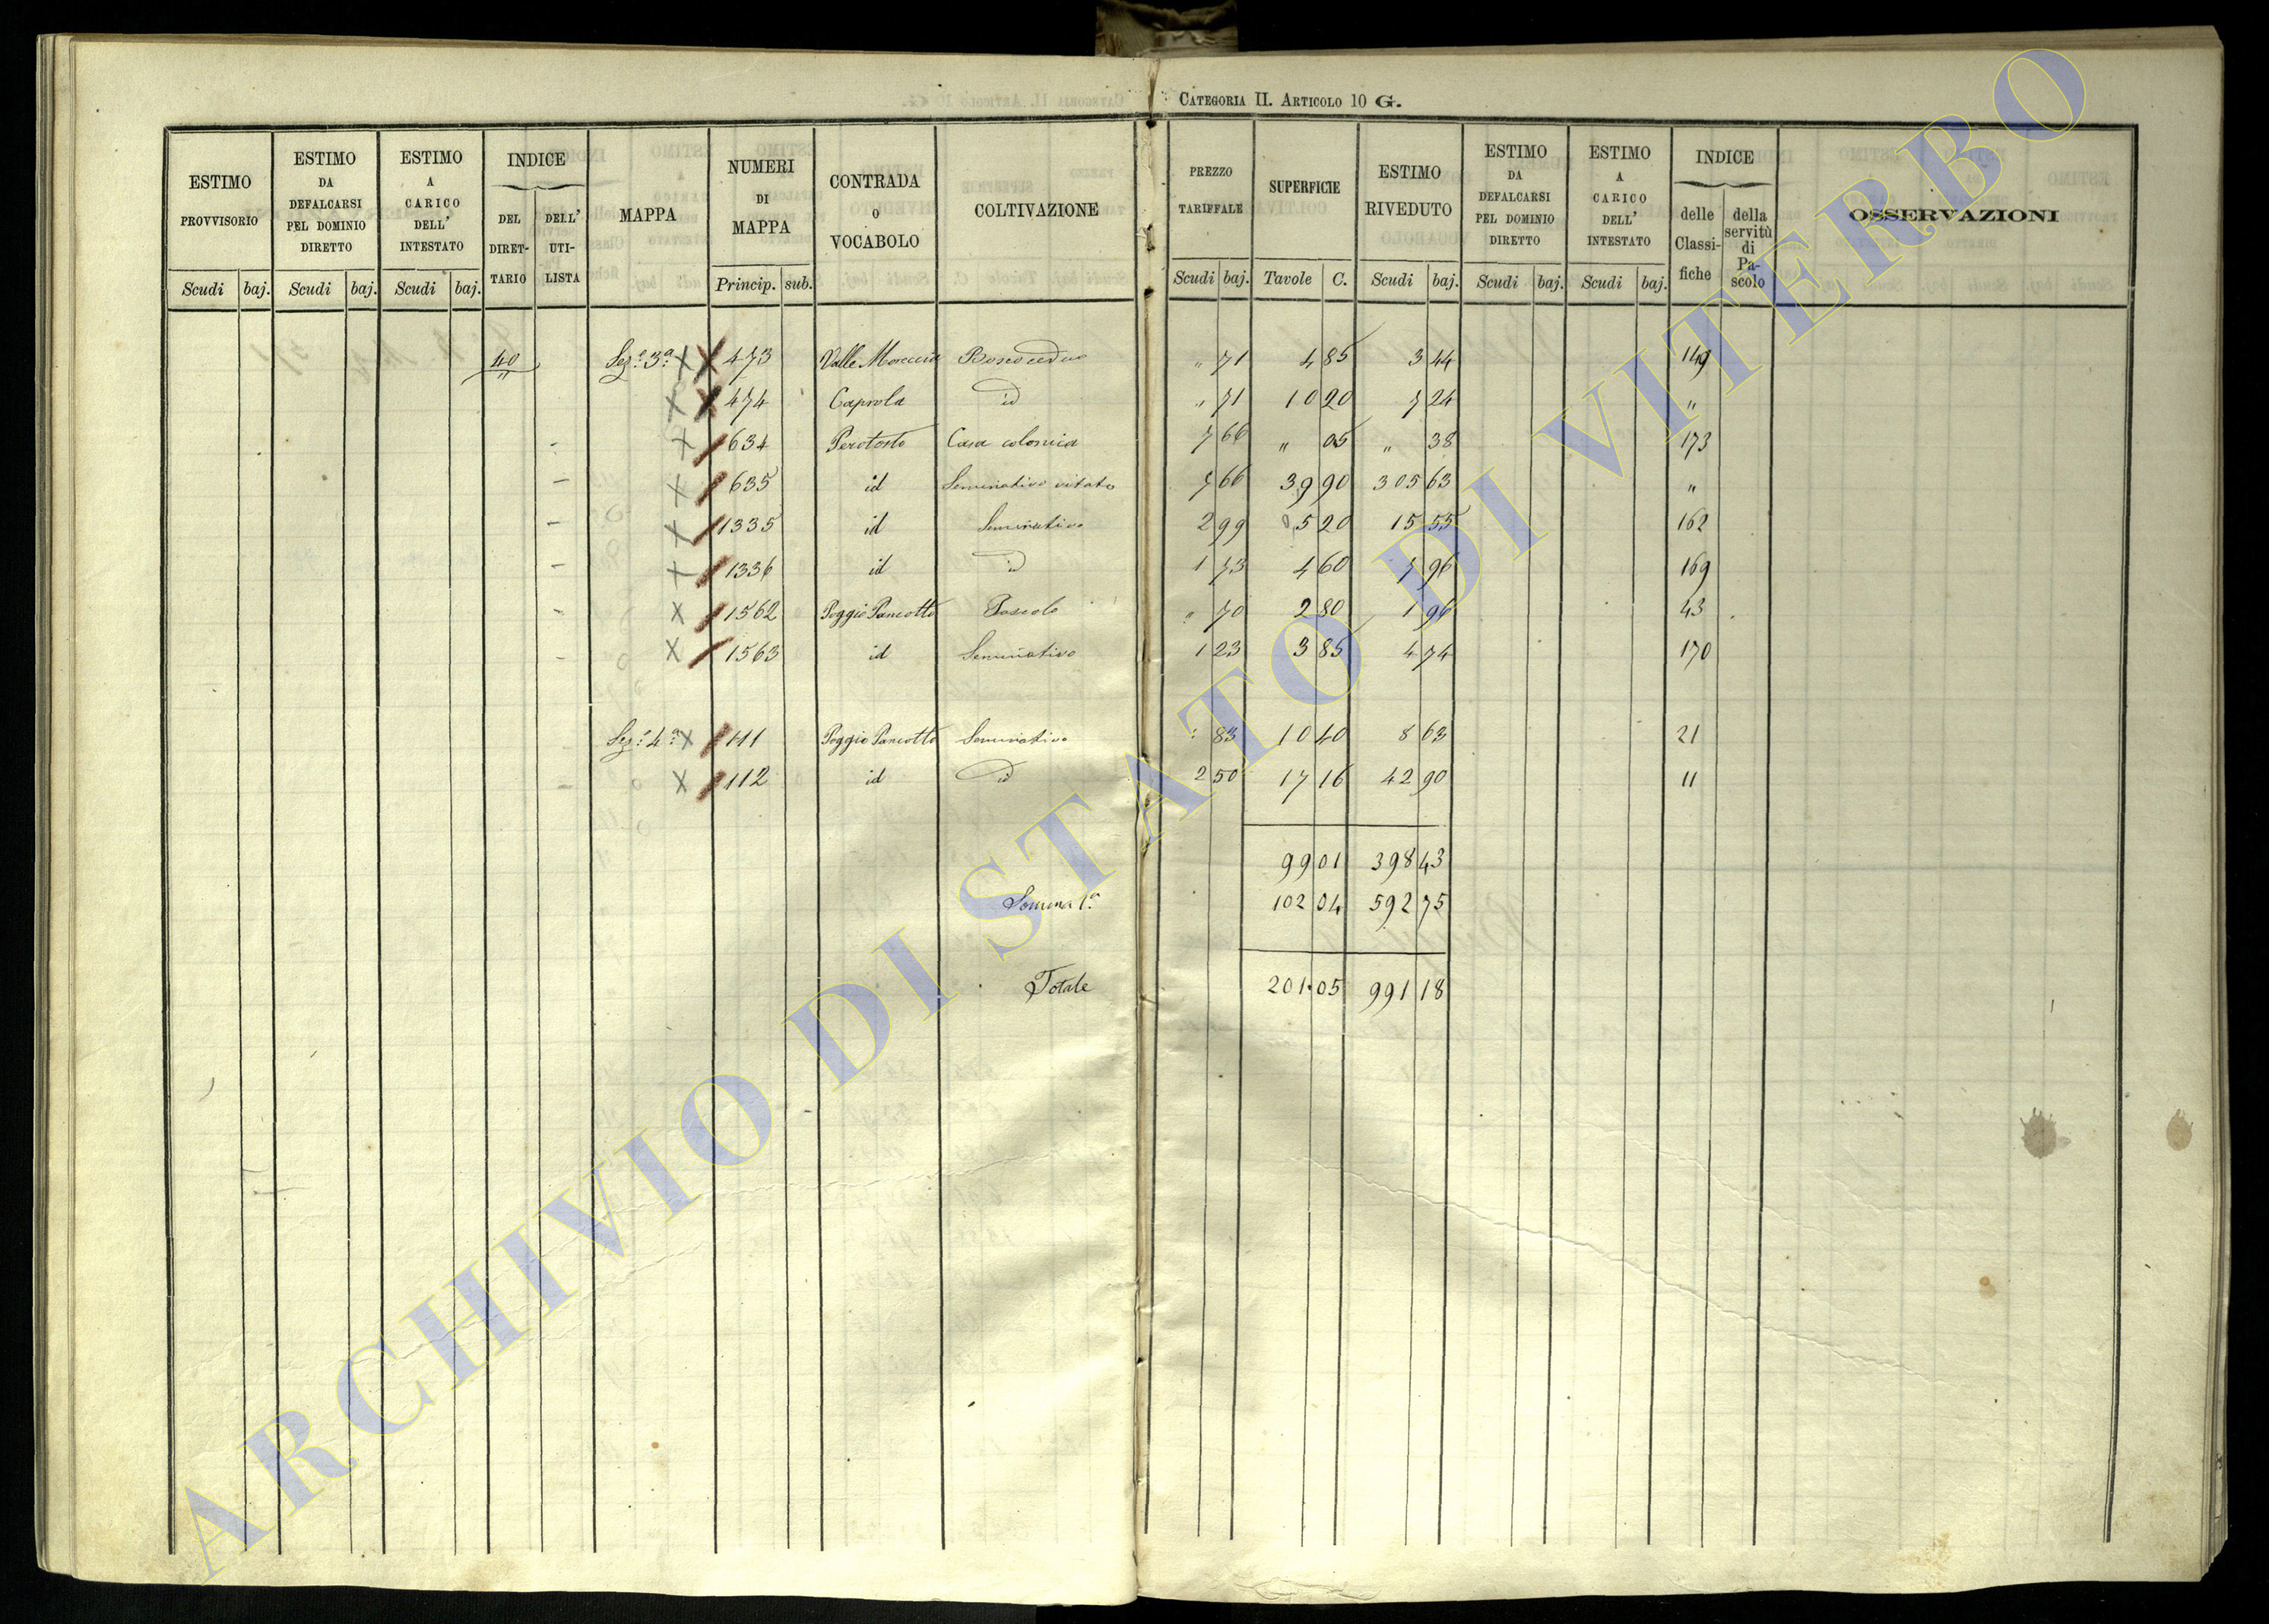 CATEGORIA II. ARTICOLO 10 G.
ESTIMO PROVVISORIO Scudi baj. ESTIMO DA DEFALCARSI PEL DOMINIO DIRETTO Scudi baj. ESTIMO A CARICO DELL' INTESTATO Scudi baj. INDICE DEL DIRETTARIO DELL' UTILISTA MAPPA NUMERI DI MAPPA Princip. sub. CONTRADA O VOCABOLO COLTIVAZIONE PREZZO TARIFFALE Scudi baj. SUPERFICIE Tavole C. ESTIMO RIVEDUTO Scudi baj. ESTIMO DA DEFALCARSI PEL DOMINIO DIRETTO Scudi baj. ESTIMO A CARICO DELL' INTESTATO Scudi baj. INDICE delle Classifiche della servitù di Pascolo OSSERVAZIONI
40 Sez.e 3a X X 473 Valle Moreccia Bosco ceduo " 71 4 85 3 44 149
X X 474 Caprola id " 71 10 20 7 24 "
X 634 Perotosto Casa colonica 7 66 " 05 " 38 173
X 635 id Seminativo vitato 7 66 39 90 305 63 "
X 1335 id Seminativo 2 99 5 20 15 55 162
X 1336 id id 1 73 4 60 7 96 169
X 1562 Poggio Pancotto Pascolo " 70 2 80 1 96 43
X 1563 id Seminativo 1 23 3 85 4 74 170
Sez.e 4a X 111 Poggio Pancotto Seminativo " 83 10 40 8 63 21
X 112 id id 2 50 17 16 42 90 11
99 01 398 43
Somma 1a 102 04 592 75
Totale 201 05 991 18
ARCHIVIO DI STATO DI VITERBO